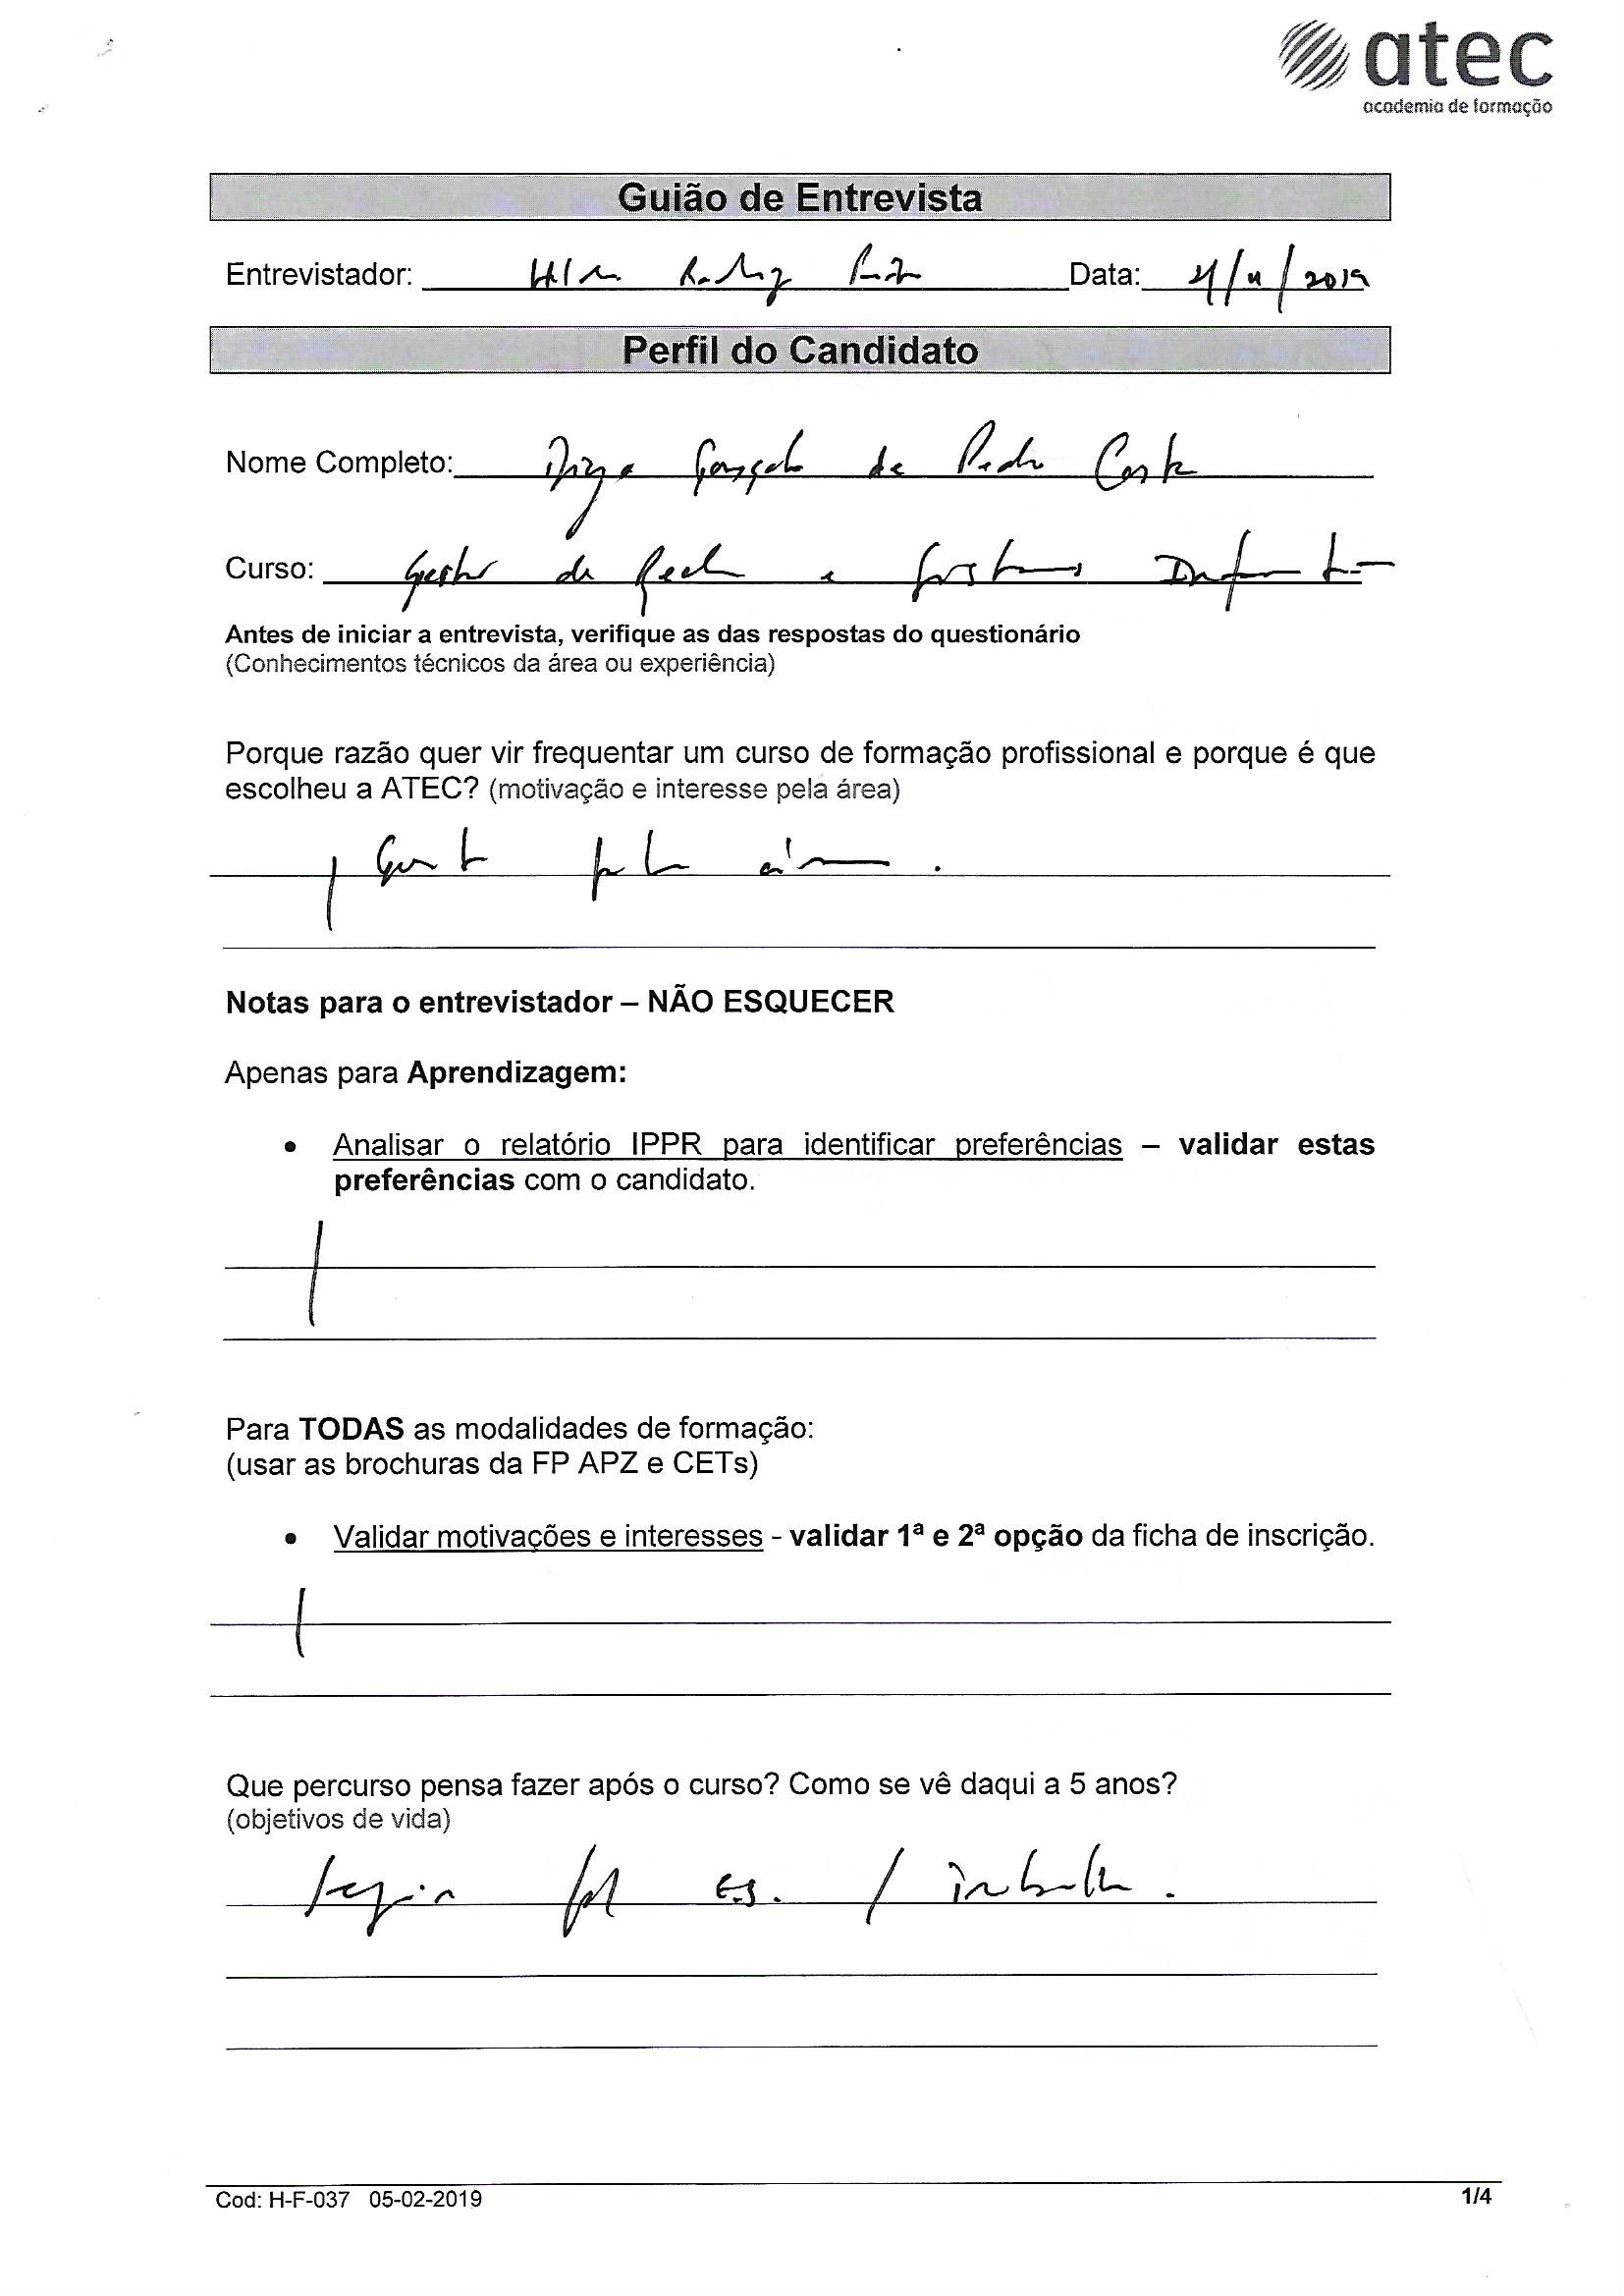 atec
academia de formação
Guião de Entrevista
Entrevistador: Data: /2019
Perfil do Candidato
Nome Completo: Gonçalo de Costa
Curso: Gestor de Redes e Sistemas
Antes de iniciar a entrevista, verifique as das respostas do questionário
(Conhecimentos técnicos da área ou experiência)
Porque razão quer vir frequentar um curso de formação profissional e porque é que
escolheu a ATEC? (motivação e interesse pela área)
Gosto pela área.
Notas para o entrevistador – NÃO ESQUECER
Apenas para Aprendizagem:
• Analisar o relatório IPPR para identificar preferências – validar estas
preferências com o candidato.
Para TODAS as modalidades de formação:
(usar as brochuras da FP APZ e CETs)
• Validar motivações e interesses - validar 1ª e 2ª opção da ficha de inscrição.
Que percurso pensa fazer após o curso? Como se vê daqui a 5 anos?
(objetivos de vida)
/
Cod: H-F-037 05-02-2019
1/4